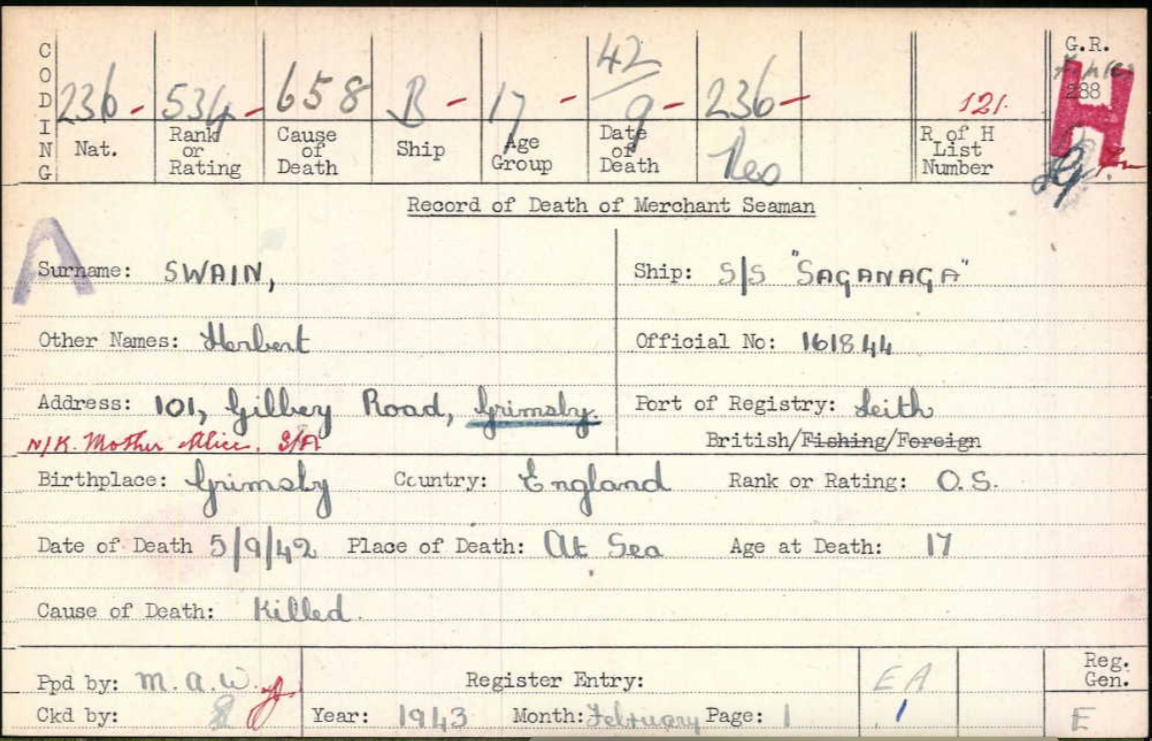 CODING
G.R.
288
H
236 - 534 - 658 B - 17 - 42/9 - 236 - 121.
Nat. Rank or Rating Cause of Death Ship Age Group Date of Death R of H List Number
Record of Death of Merchant Seaman
A
Surname: SWAIN, Ship: S/S "SAGANAGA"
Other Names: Herbert Official No: 161844
Address: 101, Gilbey Road, Grimsby. Port of Registry: Leith
N/K. Mother Alice. S/A British/Fishing/Foreign
Birthplace: Grimsby Country: England Rank or Rating: O.S.
Date of Death 5/9/42 Place of Death: At Sea Age at Death: 17
Cause of Death: Killed.
Ppd by: M.A.W. Register Entry: EA Reg. Gen.
Ckd by: Year: 1943 Month: February Page: 1 1 E